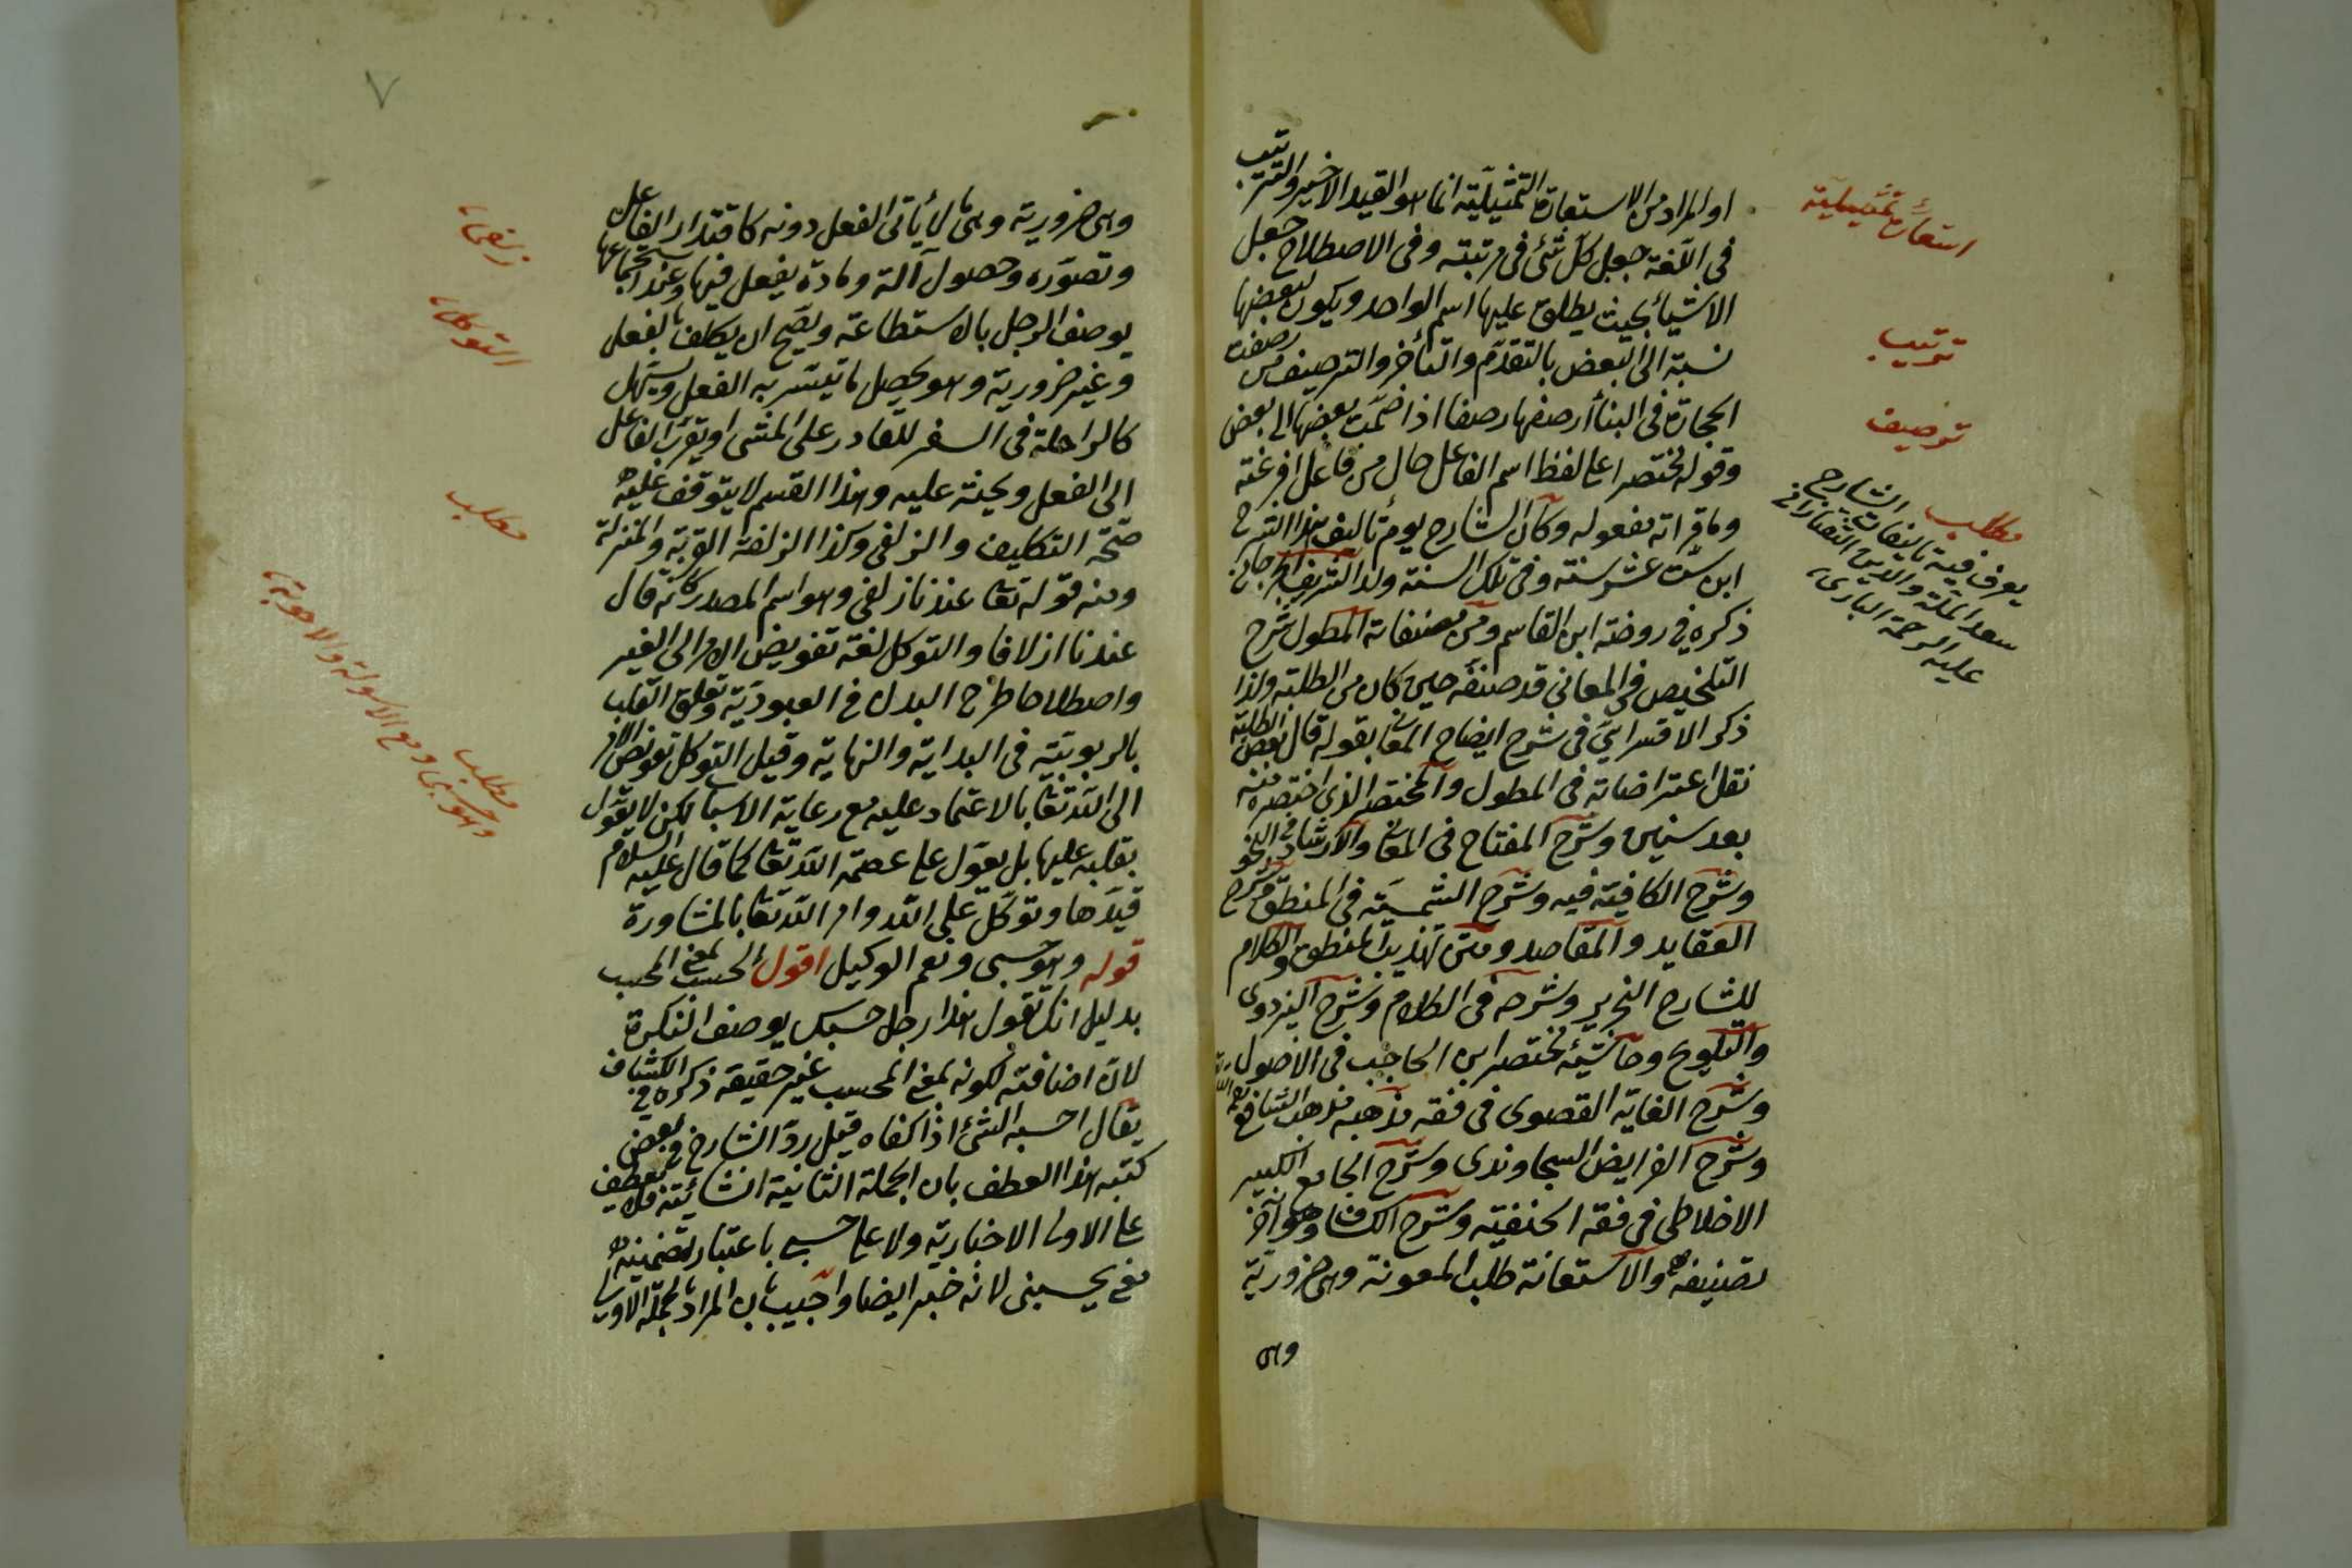 او المراد من الاستعارة التمثيلية انما هو القيد الاخير والترتيب
في اللغة جعل كل شئ في مرتبته وفي الاصطلاح جعل
الاشياء بحيث يطلق عليها اسم الواحد ويكون لبعضها
نسبة الى البعض بالتقدم والتأخر والترصيف من رصفت
الحجارة في البناء ارصفها رصفا اذا ضمت بعضها الى بعض
وقوله مختصرا على لفظ اسم الفاعل حال من فاعل افرغته
وما قرأته مفعوله وكان الشارح يوم تأليف هذا الشرح
ابن ست عشر سنة وفي تلك السنة ولد الشريف الجرجاني
ذكره في روضة ابن القاسم ومن مصنفاته المطول شرح
التلخيص في المعاني قد صنفه حين كان من الطلبة ولذا
ذكر الاقسرايي في شرح ايضاح المعاني بقوله قال بعض الطلبة
نقل اعتراضاته في المطول والمختصر الذي اختصره منه
بعد سنين وشرح المفتاح في المعاني والارشاد في النحو
وشرح الكافية فيه وشرح الشمسية في المنطق وشرح
العقايد والمقاصد ومتن تهذيب المنطق والكلام
للشارح النحرير وشرحه في الكلام وشرح البزدوي
والتلويح وحاشية مختصر ابن الحاجب في الاصول
وشرح الغاية القصوى في فقه مذهبه مذهب الشافعي
وشرح الفرايض السجاوندي وشرح الجامع الكبير
الاخلاطي في فقه الحنفية وشرح الكشاف وهو آخر
تصنيفه والاستعانة طلب المعونة وهي ضرورية
وهى
استعارة تمثيلية
ترتيب
ترصيف
مطلب الشارح
يعرف فيه تاليفات
سعد الملة والدين التفتازاني
عليه الرحمة البارى
٧
وهي ضرورية وهي ما لا يتأتى الفعل دونه كاقتدار الفاعل
وتصوره وحصول آلة ومادة يفعل فيها وعند استجماعها
يوصف الرجل بالاستطاعة ويصح ان يكلف بالفعل
وغير ضرورية وهو تحصيل ما تيسر به الفعل ويسهل
كالراحلة في السفر للقادر على المشى او يقرب الفاعل
الى الفعل ويحثه عليه وهذا القسم لا يتوقف عليه
صحة التكليف والزلفى وكذا الزلفة القربة والمنزلة
ومنه قوله تعا عندنا زلفى وهو اسم المصدر كأنه قال
عندنا ازلافا والتوكل لغة تفويض الامر الى الغير
واصطلاحا طرح البدن في العبودية وتعلق القلب
بالربوبية في البداية والنهاية وقيل التوكل تفويض الامر
الى الله تعا بالاعتماد عليه مع رعاية الاسباب لكن لا يعول
بقلبه عليها بل يعول على عصمة الله تعا كما قال عليه السلام
قيدها وتوكل على الله وامر الله تعا بالمشاورة
قوله وهو حسبى ونعم الوكيل اقول الحسب بمعنى المحسب
بدليل انك تقول هذا رجل حسبك يوصف النكرة
لان اضافته لكونه بمعنى المحسب غير حقيقة ذكره في الكشاف
يقال احسبه الشئ اذا كفاه قيل رد الشارح في بعض
كتبه هذا العطف بان الجملة الثانية انشائية فلا يعطف
على الاولى الاخبارية ولا على حسبى باعتبار تضمينه
معنى يحسبنى لانه خبر ايضا واجيب بان المراد بالجملة الاولى
زلفى
التوكل
مطلب
مطلب
وهو حسبى ومع الاسولة والاجوبة